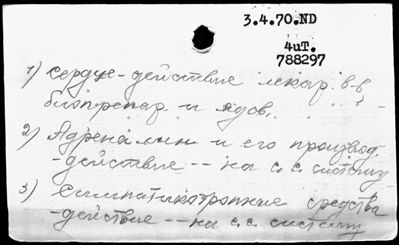 3.4.70.ND
4иТ.
788297
1) Сердце-действие лекар. в-в
биопрепар. и ядов.
2) Адреналин и его производ.
-действие -- на с.с. систему
3) Симпатикотропные средства
-действие -- на с.с. систему